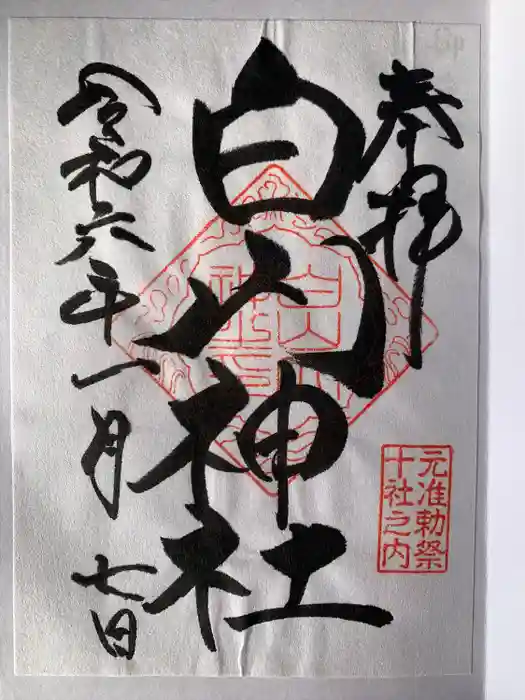 奉拝
白山神社
令和六年一月七日
元准勅祭
十社之内